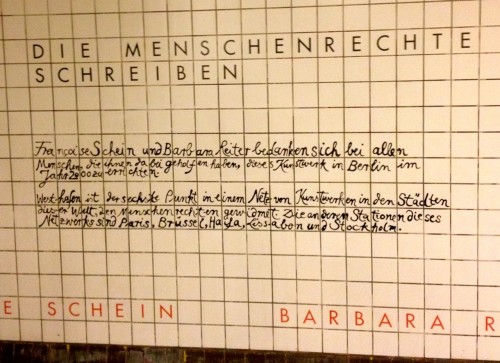 DIE MENSCHENRECHTE
SCHREIBEN
Françoise Schein und Barbara Reiter bedanken sich bei allen
Menschen, die ihnen dabei geholfen haben, dieses Kunstwerk in Berlin im
Jahr 2000 zu errichten
Westhafen ist der sechste Punkt in einem Netz von Kunstwerken in den Städten
dieser Welt, den Menschenrechten gewidmet. Die anderen Stationen dieses
Netzwerks sind Paris, Brüssel, Haifa, Lissabon und Stockholm.
E SCHEIN BARBARA R